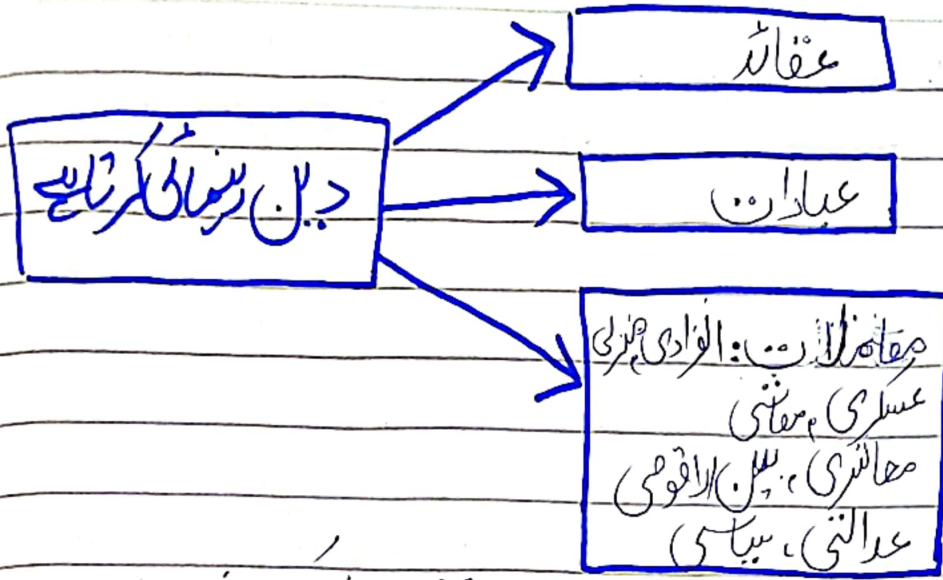 عقائد
دین رہنمائی کرتا ہے
عبادات
معاملات: انفرادی، منزلی
عسکری، معاشی
معاشرتی، بین الاقوامی
عدالتی، سیاسی